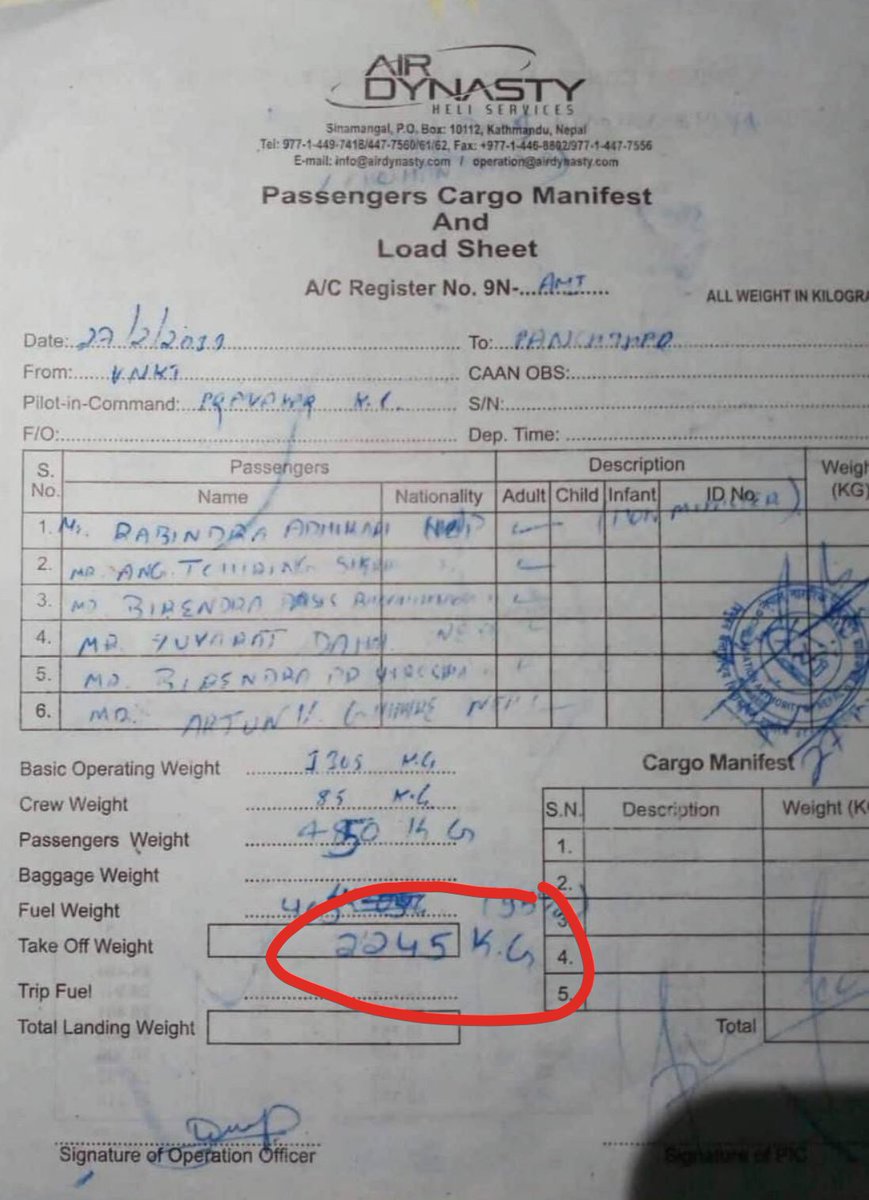 AIR
DYNASTY
HELI SERVICES
Sinamangal, P.O. Box: 10112, Kathmandu, Nepal
Tel: 977-1-449-7418/447-7560/61/62, Fax: +977-1-446-8802/977-1-447-7556
E-mail: info@airdynasty.com / operation@airdynasty.com
Passengers Cargo Manifest
And
Load Sheet
A/C Register No. 9N-...AMI......
ALL WEIGHT IN KILOGRA
Date: 27/2/2019 To:
From: VNKT CAAN OBS:
Pilot-in-Command: K.C. S/N:
F/O: Dep. Time:
S. No. Passengers Description Weigh (KG)
Name Nationality Adult Child Infant ID No.
1. Mr. RABINDRA ADHIKARI (HON MINISTER)
2. MR. ANG
3. MR. BIRENDRA
4. MR. YUVARAJ
5. MR. BIRENDRA
6. MR. ARJUN
Basic Operating Weight 1305 K.G
Crew Weight 85 K.G
Passengers Weight KG
Baggage Weight
Fuel Weight
Take Off Weight 2245 K.G
Trip Fuel
Total Landing Weight
Cargo Manifest
S.N. Description Weight (K
1.
2.
3
4.
5.
Total
Signature of Operation Officer
Signature of PIC